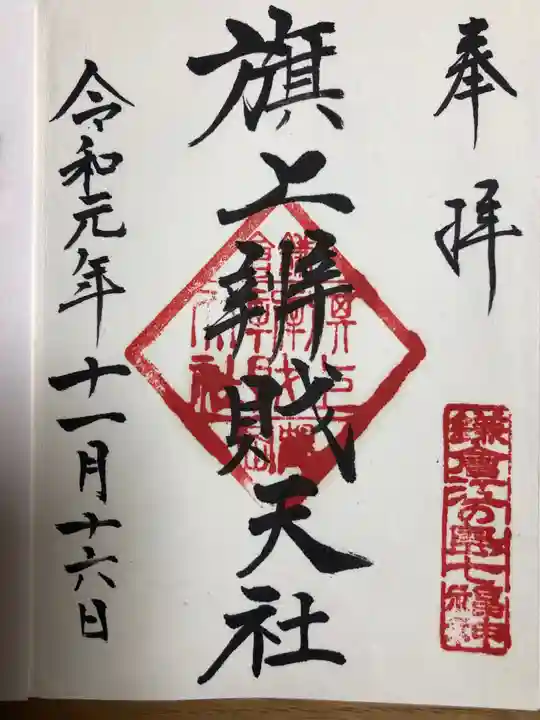 奉拝
鎌倉江の島七福神
旗上辨財天社
令和元年十一月十六日